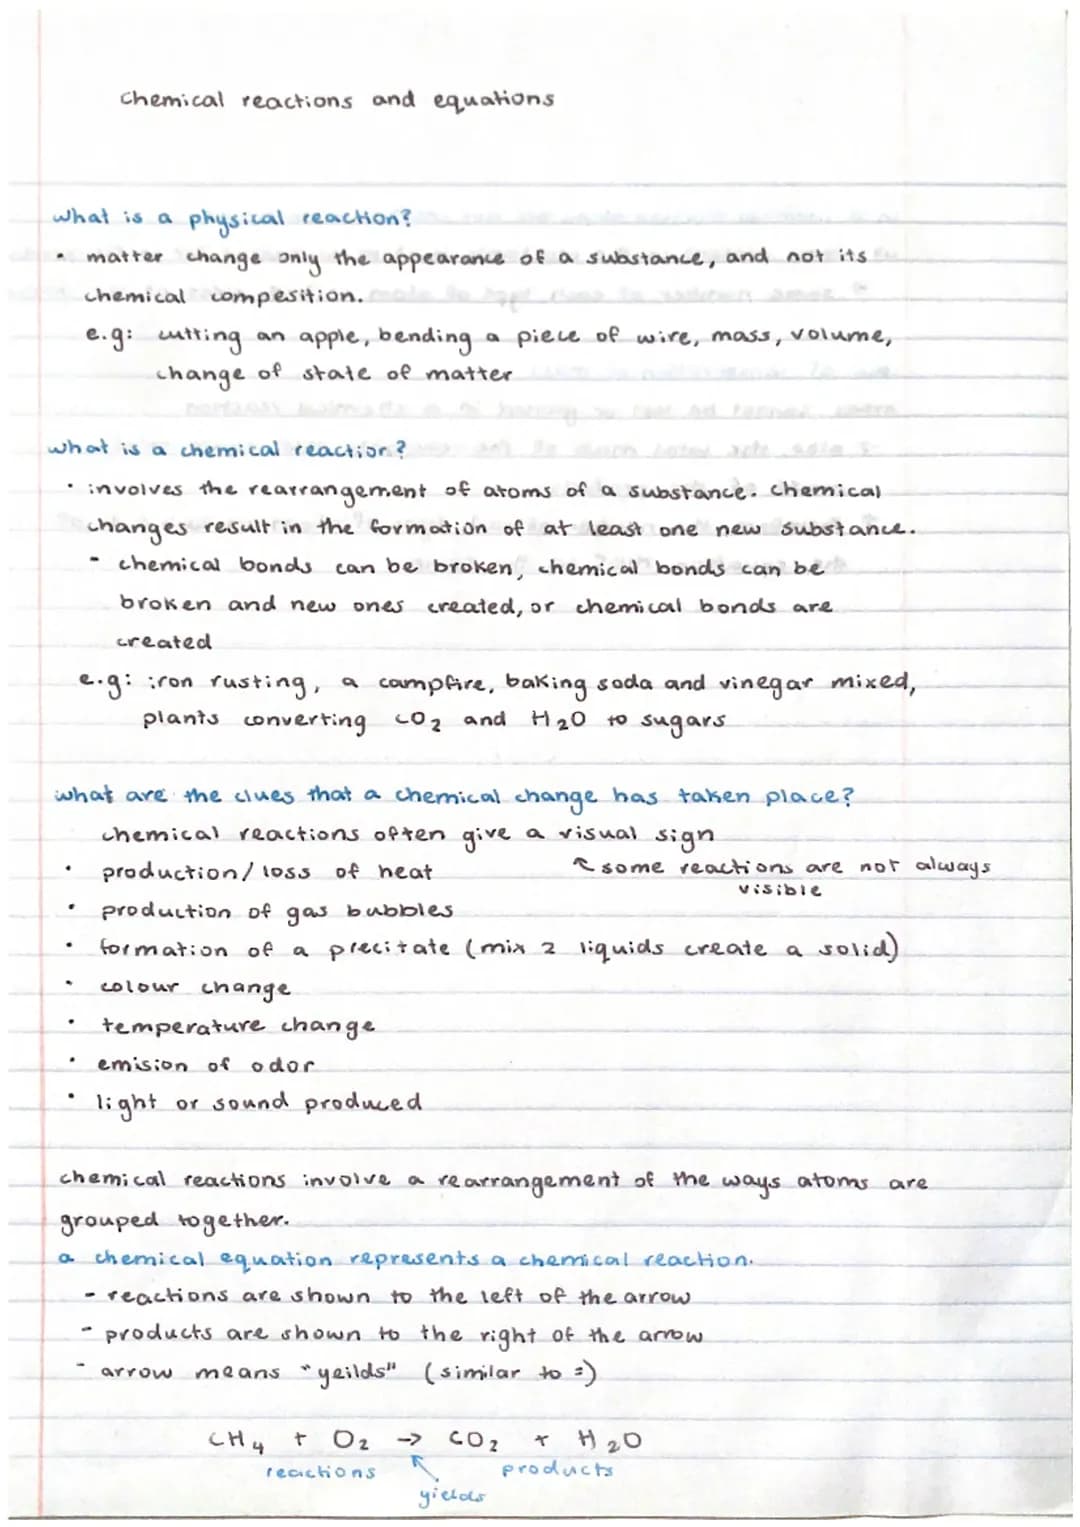 Chemical reactions and equations
what is a physical reaction?
• matter change only the appearance of a substance, and not its
chemical compesition.
e.g: cutting an apple, bending a piece of wire, mass, volume,
change of state of matter
what is a chemical reaction?
• involves the rearrangement of atoms of a substance. chemical
changes result in the formation of at least one new substance.
- chemical bonds can be broken, chemical bonds can be
broken and new ones created, or chemical bonds are
created
e.g: iron rusting, a campfire, baking soda and vinegar mixed,
plants converting CO₂ and H₂O to sugars
what are the clues that a chemical change has taken place?
chemical reactions often give a visual sign
• production/loss of heat ↖ some reactions are not always
visible
• production of gas bubbles
• formation of a precitate (mix 2 liquids create a solid)
• colour change
• temperature change
• emision of odor
• light or sound produced
chemical reactions involve a rearrangement of the ways atoms are
grouped together.
a chemical equation represents a chemical reaction.
- reactions are shown to the left of the arrow
- products are shown to the right of the arrow
- arrow means "yeilds" (similar to =)
CH₄ + O₂ → CO₂ + H₂O
reactions products
yields